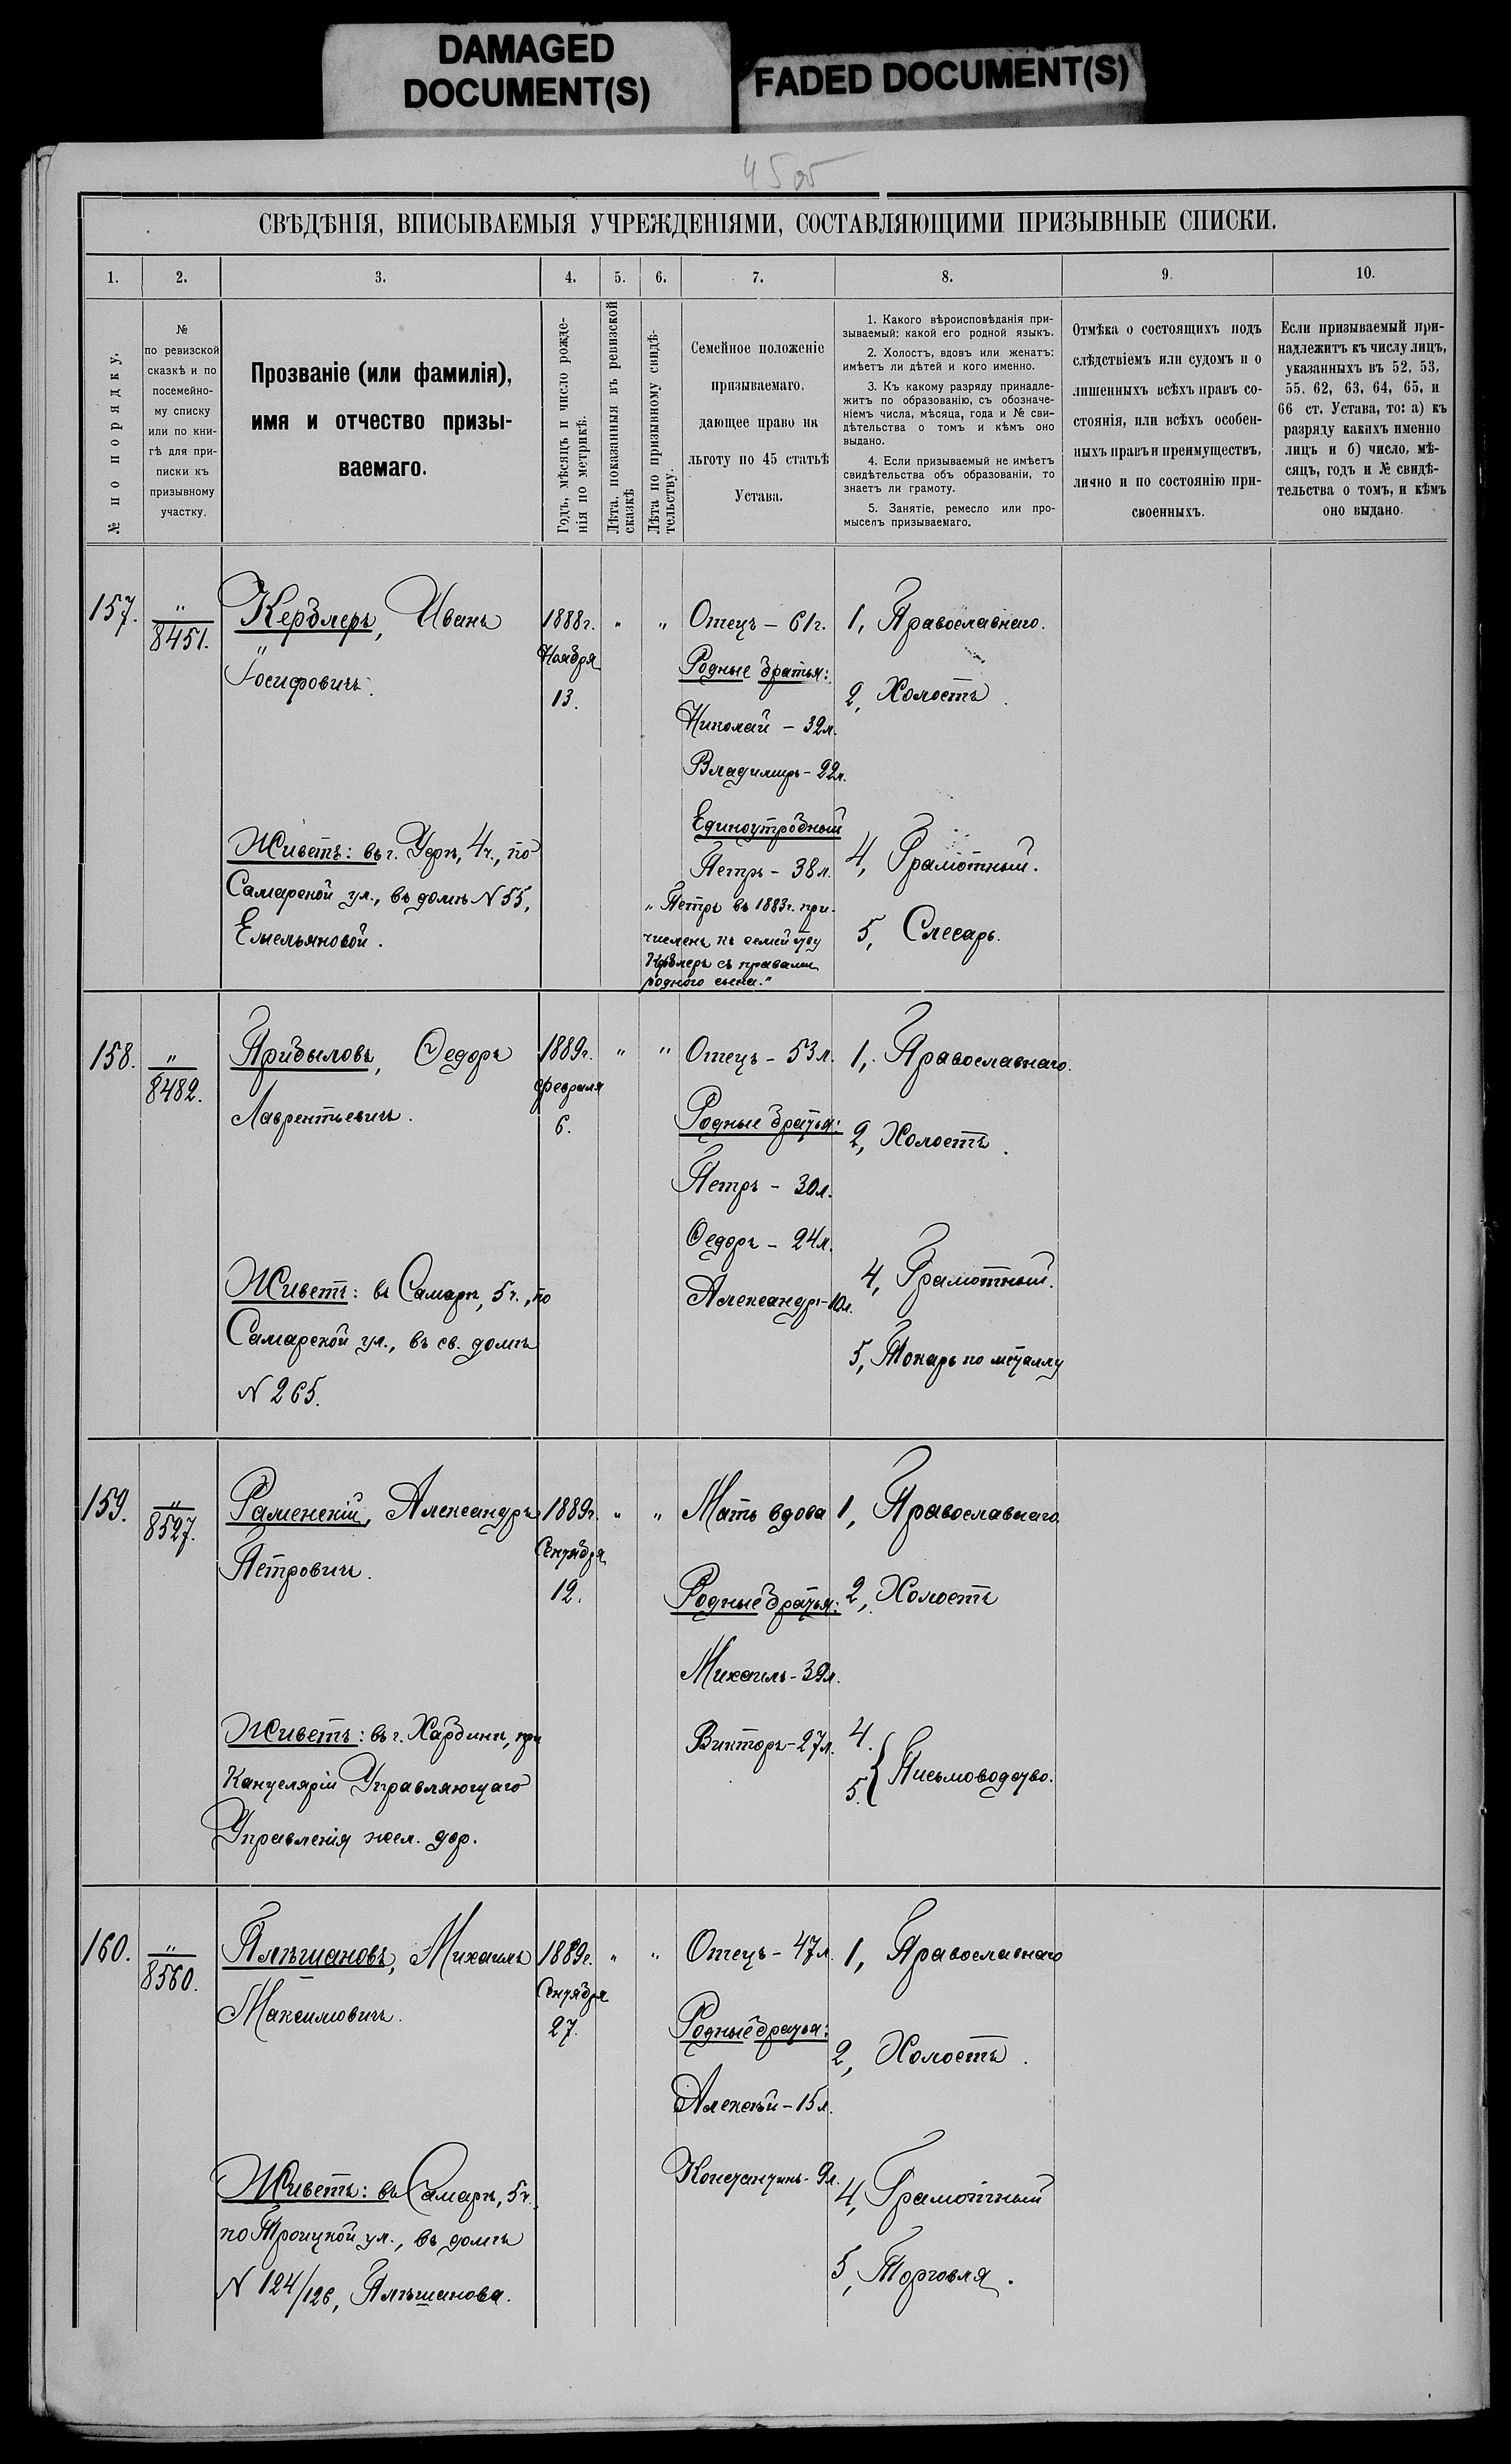 DAMAGED
DOCUMENT(S)
FADED DOCUMENT(S)
СВѢДѢНІЯ, ВПИСЫВАЕМЫЯ УЧРЕЖДЕНІЯМИ, СОСТАВЛЯЮЩИМИ ПРИЗЫВНЫЕ СПИСКИ.
1. 2. 3. 4. 5. 6. 7. 8. 9. 10.
№ по порядку.
№
по ревизской
сказкѣ и по
посемейно-
му списку
или по кни-
гѣ для при-
писки къ
призывному
участку.
Прозваніе (или фамилія),
имя и отчество призы-
ваемаго.
Годъ, мѣсяцъ и число рожде-
нія по метрикѣ.
Лѣта, показанныя въ ревизской
сказкѣ
Лѣта по призывному свидѣ-
тельству.
Семейное положеніе
призываемаго,
дающее право на
льготу по 45 статьѣ
Устава.
1. Какого вѣроисповѣданія при-
зываемый; какой его родной языкъ.
2. Холостъ, вдовъ или женатъ:
имѣетъ ли дѣтей и кого именно.
3. Къ какому разряду принадле-
житъ по образованію, съ обозначе-
ніемъ числа, мѣсяца, года и № сви-
дѣтельства о томъ и кѣмъ оно
выдано.
4. Если призываемый не имѣетъ
свидѣтельства объ образованіи, то
знаетъ ли грамоту.
5. Занятіе, ремесло или про-
мыселъ призываемаго.
Отмѣка о состоящихъ подъ
слѣдствіемъ или судомъ и о
лишенныхъ всѣхъ правъ со-
стоянія, или всѣхъ особен-
ныхъ правъ и преимуществъ,
лично и по состоянію при-
своенныхъ.
Если призываемый при-
надлежитъ къ числу лицъ,
указанныхъ въ 52, 53,
55, 62, 63, 64, 65, и
66 ст. Устава, то: а) къ
разряду какихъ именно
лицъ и б) число, мѣ-
сяцъ, годъ и № свидѣ-
тельства о томъ, и кѣмъ
оно выдано.
157.
"
8451.
Керблеръ, Иванъ
Іосифовичъ.
Живетъ: въ г. Уфѣ, 4ч., по
Самарской ул., въ домѣ N 55,
Емельяновой.
1888г.
Ноября
13.
" "
Отецъ – 61г.
Родные братья:
Николай – 32л.
Владимиръ – 22л.
Единоутробный
Петръ – 38л.
"Петръ въ 1883г. при-
численъ къ семейству
Керблеръ съ правами
родного сына."
1, Православнаго.
2, Холостъ.
4, Грамотный.
5, Слесарь.
158.
"
8482.
Прибыловъ, Ѳедоръ
Лаврентьевичъ.
Живетъ: въ Самарѣ, 5ч., по
Самарской ул., въ св. домѣ
N 265.
1889г.
Февраля
6.
" "
Отецъ – 53л.
Родные братья:
Петръ – 30л.
Ѳедоръ – 24л.
Александръ – 10л.
1, Православнаго.
2, Холостъ.
4, Грамотный.
5, Токарь по металлу
159.
"
8527.
Раменскій, Александръ
Петровичъ.
Живетъ: въ г. Харбинѣ, при
Канцеляріи Управляющаго
Управленія жел. дор.
1889г.
Сентября
12.
" "
Мать вдова
Родные братья:
Михаилъ – 39л.
Викторъ – 27л.
1, Православнаго.
2, Холостъ
4.
5. { Письмоводство.
160.
"
8560.
Плѣшановъ, Михаилъ
Максимовичъ.
Живетъ: въ Самарѣ, 5ч.
по Троицкой ул., въ домѣ
N 124/126, Плѣшанова.
1889г.
Сентября
27.
" "
Отецъ – 47л.
Родные братья:
Алексѣй – 15л.
Константинъ – 9л.
1, Православнаго
2, Холостъ.
4, Грамотный
5, Торговля.